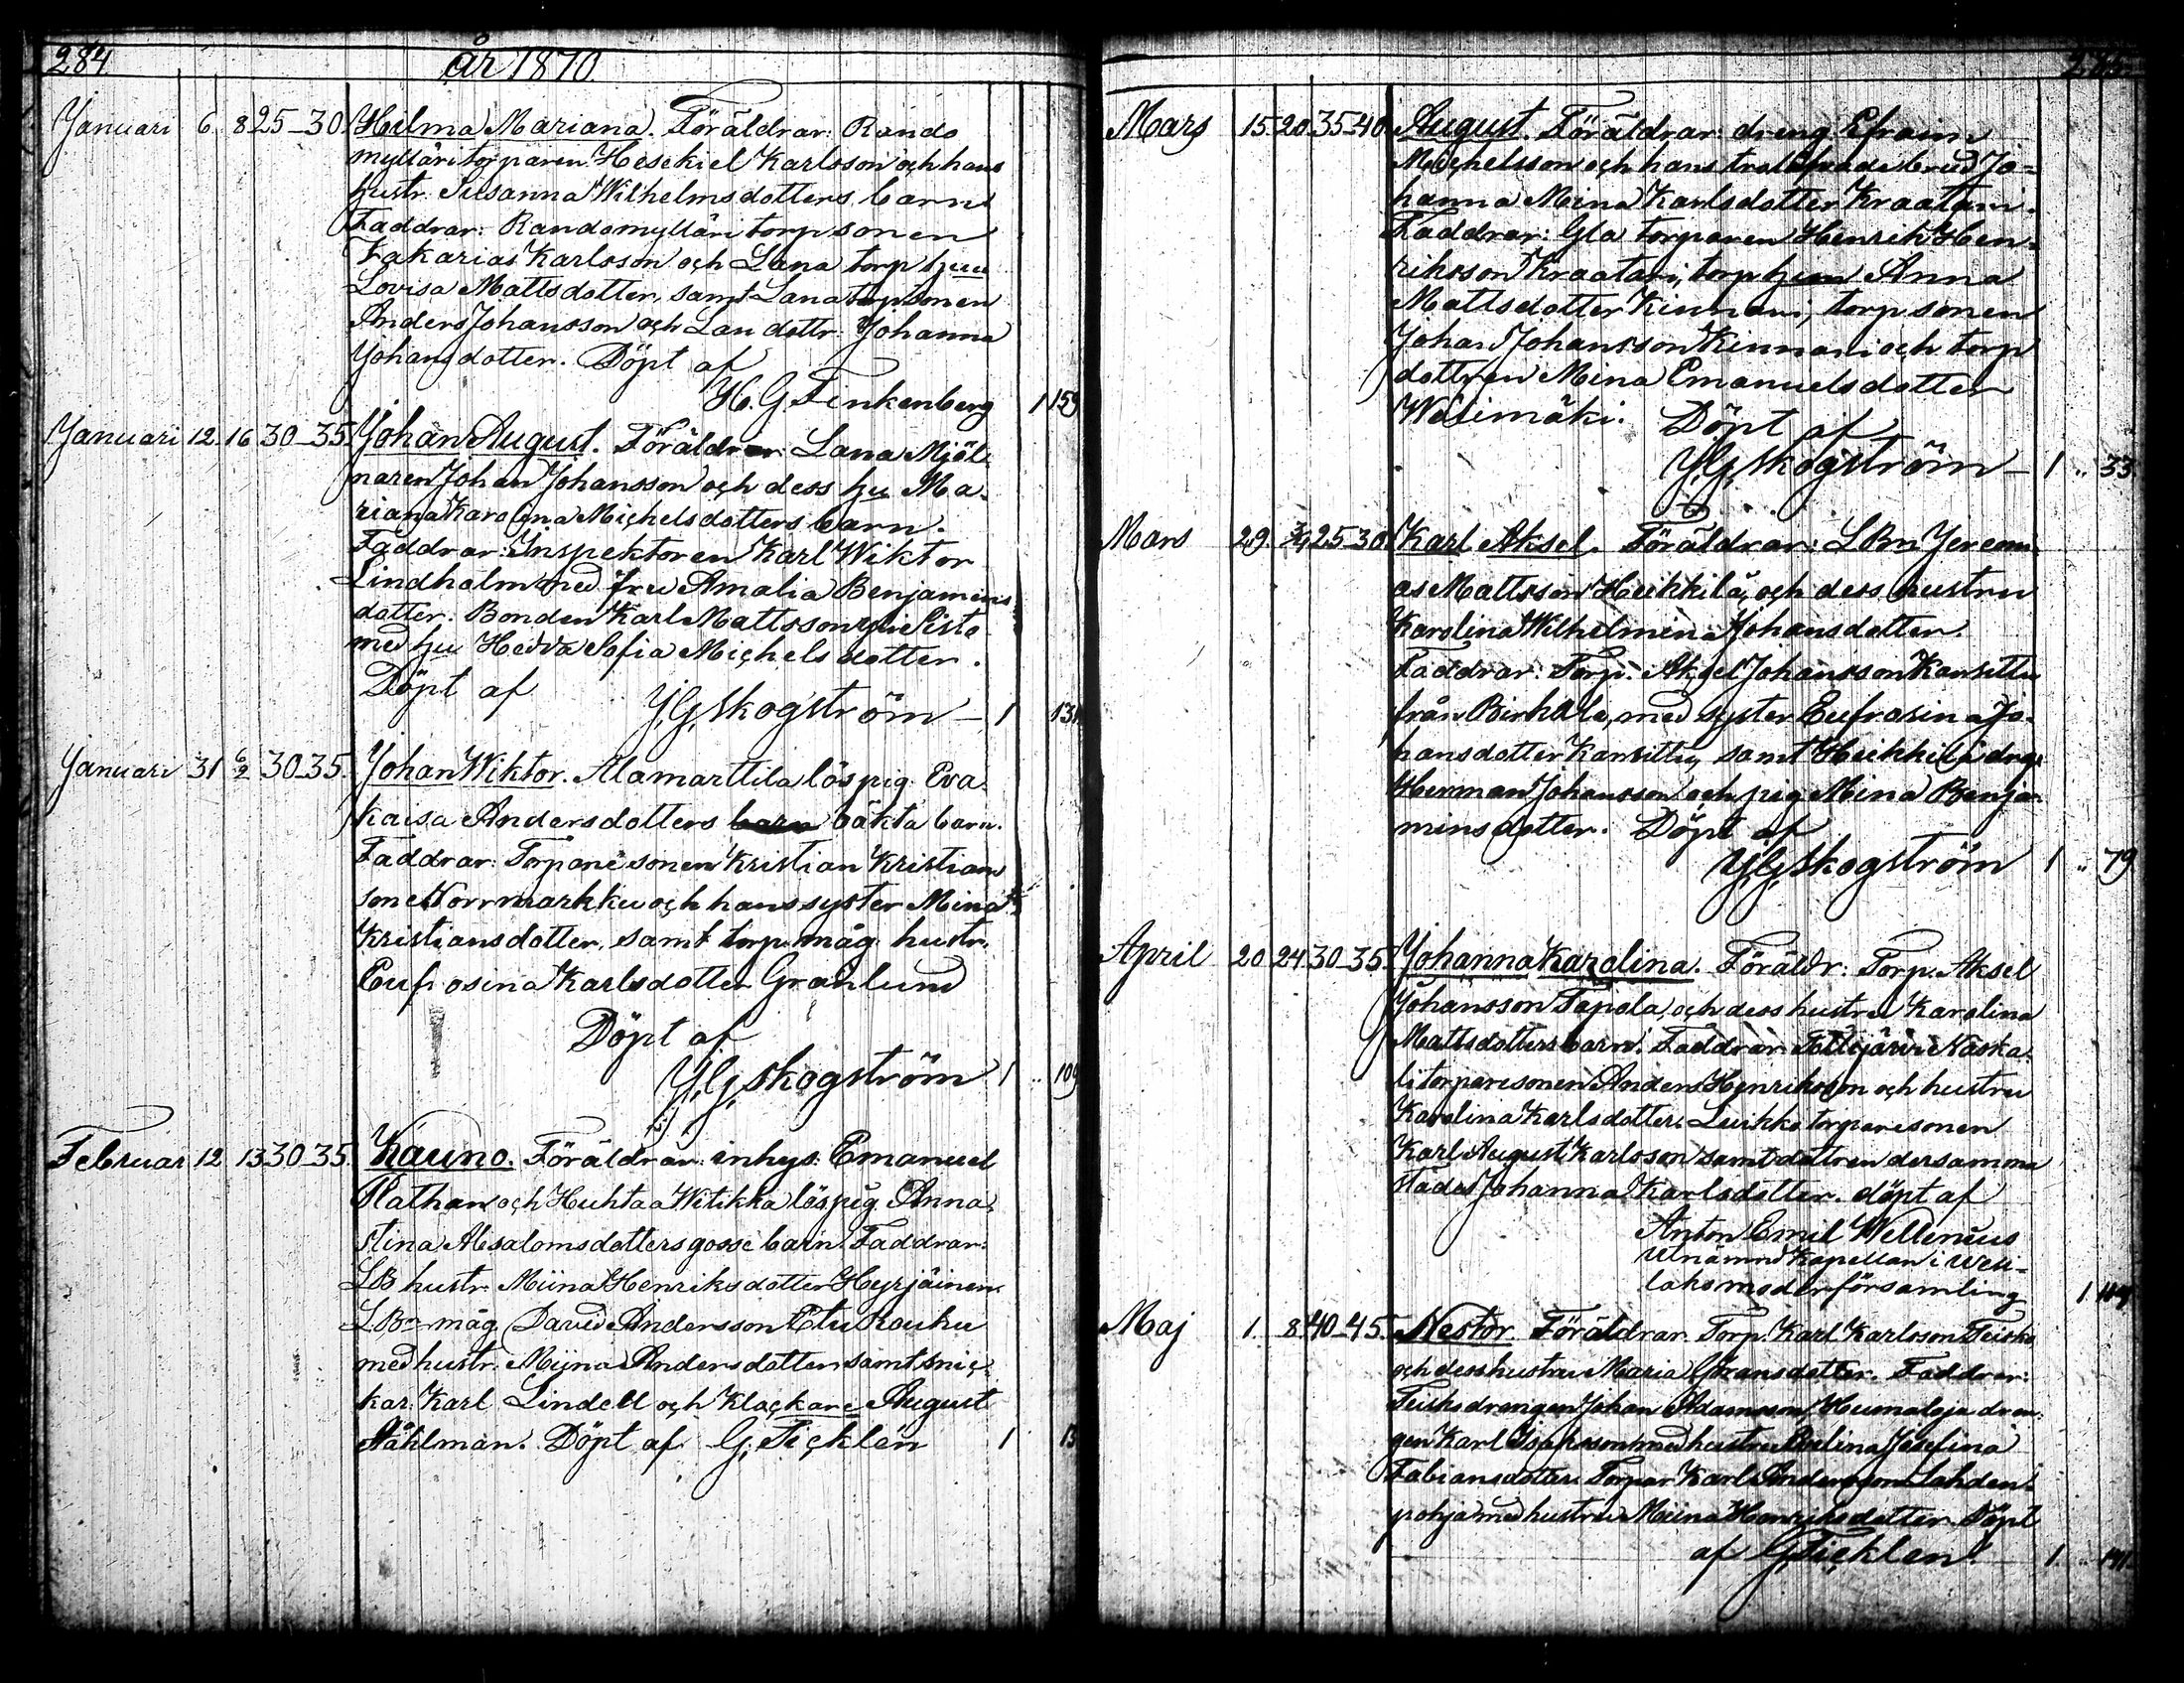 284
år 1870
Januari 6. 8 25-30 Hilma Mariana. Föräldrar: Rando
mylläri torparen Hesekiel Karlsson och hans
hustr. Susanna Wilhelmsdotters barn
Faddrar: Randomylläri torpsonen
Zakarias Karlsson och Lana torp hu
Lovisa Mattsdotter, samt Lana torpsonen
Anders Johansson och Lan dottr. Johanna
Johansdotter. Döpt af
H. G. Finkenberg 1 159
Januari 12. 16 30-35. Johan August. Föräldrar: Lana Mjöl-
naren Johan Johansson och dess hu Ma-
riana Karolina Michelsdotters barn.
Faddrar: Inspektoren Karl Wiktor
Lindholm med fru Amalia Benjamins
dotter. Bonden Karl Mattsson Sisto
med hu Hedda Sofia Michelsdotter.
Döpt af J. G. Skogström 1 131
Januari 31 6/2 30-35. Johan Wiktor. Alamarttila löspig. Eva
Kaisa Andersdotters barn oäkta barn.
Faddrar: Torpare sonen Kristian Kristians
son Norrmarkku och hans syster Mina
Kristiansdotter, samt torp. måg. hustr.
Eufrosina Karlsdotter Granlund
Döpt af
J. G. Skogström 1 .. 109
Februar 12 13 30-35. Kauno. Föräldrar: inhys. Emanuel
Nathan och Huhtaa Witikka löspig. Anna
Stina Absalomsdotters gosse barn. Faddrar:
LB hustr. Miina Henriksdotter Hyrjäinen.
LB= måg David Andersson Etu Rouhu
med hustr. Miina Andersdotter samt snic-
kar. Karl Lindell och Klockare August
Ståhlman. Döpt af G. Ticklén 1 13
285
Mars 15. 20. 35-40. August. Föräldrar: dreng Efraim
Michelsson och hans trolofvade brud Jo-
hanna Mina Karlsdotter Kraatari.
Faddrar: Gla torparen Henrik Hen-
riksson Kraatari, torp hun Anna
Mattsdotter Kinnari, torpsonen
Johan Johansson Kinnari och torp
dottren Mina Emanuelsdotter
Wesimäki. Döpt af
J. G. Skogström 1 .. 33.
Mars 29. 3/4 25-30 Karl Aksel. Föräldrar: LBn Jeremi
as Mattsson Heikkilä, och dess hustru
Karolina Wilhelmina Johansdotter.
Faddrar: Torp. Aksel Johansson Kansittu
från Birkala, med syster Eufrosina Jo-
hansdotter Kansittu, samt Heikkilä drg
Herman Johansson och pig Mina Benja-
minsdotter. Döpt af
J. G. Skogström 1 .. 79
April 20 24 30-35. Johanna Karolina. Föräldr: Torp. Aksel
Johansson Tapola, och dess hustru Karolina
Mattsdotters barn. Faddrar: Naska-
li torparesonen Anders Henriksson och hustru
Karolina Karlsdotter, Luikko torparesonen
Karl August Karlsson samt dottren dersamma
städes Johanna Karlsdotter. döpt af
Anton Emil Wellenius
utnämnd Kapellan i Wesi-
laks moderförsamling 1.
Maj 1. 8. 40-45. Nestor. Föräldrar: Torp. Karl Karlsson Teisko
och dess hustru Maria Göransdotter. Faddrar:
Teisko drengen Johan Adamsson, Humaloja dren-
gen Karl Isaksson med hustru Josefina
Fabiansdotter. Torpar Karl Andersson Lahden-
pohja med hustru Miina Henriksdotter. Döpt
af G. Ticklén. 1. ..